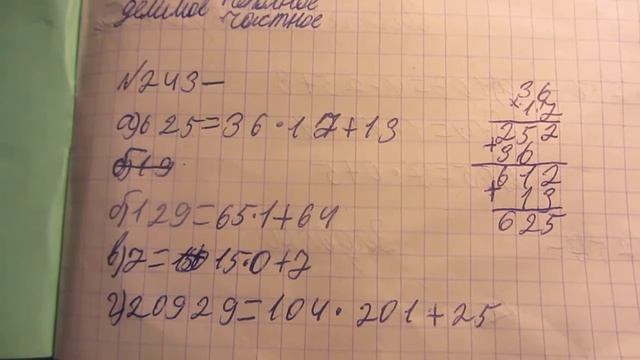 делимое неполное
частное
№243
а) 625=36·17+13
б) 19
б) 129=65·1+64
в) 7=15·0+7
г) 20929=104·201+25
36
×17
252
+36
612
+13
625